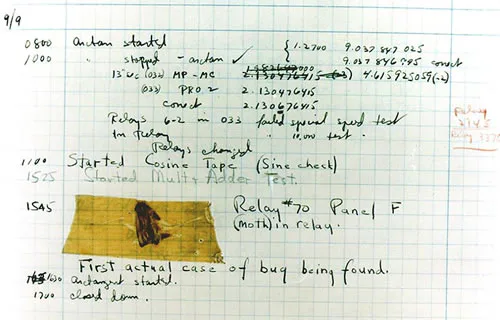 9/9
0800 antan started { 1.2700 9.037 847 025
1000 " stopped - antan ✓ 9.037 846 995 conect
13" uc (032) MP - MC 2.130476415 (-3) 4.615925059(-2)
(033) PRO 2 2.130476415
conect 2.130676415
Relays 6-2 in 033 failed special speed test
in relay " 10.000 test.
Relay
3370
Relays changed
1100 Started Cosine Tape (Sine check)
1525 Started Mult+Adder Test.
1545 Relay #70 Panel F
(moth) in relay.
First actual case of bug being found.
1630 antangent started.
1700 closed down.